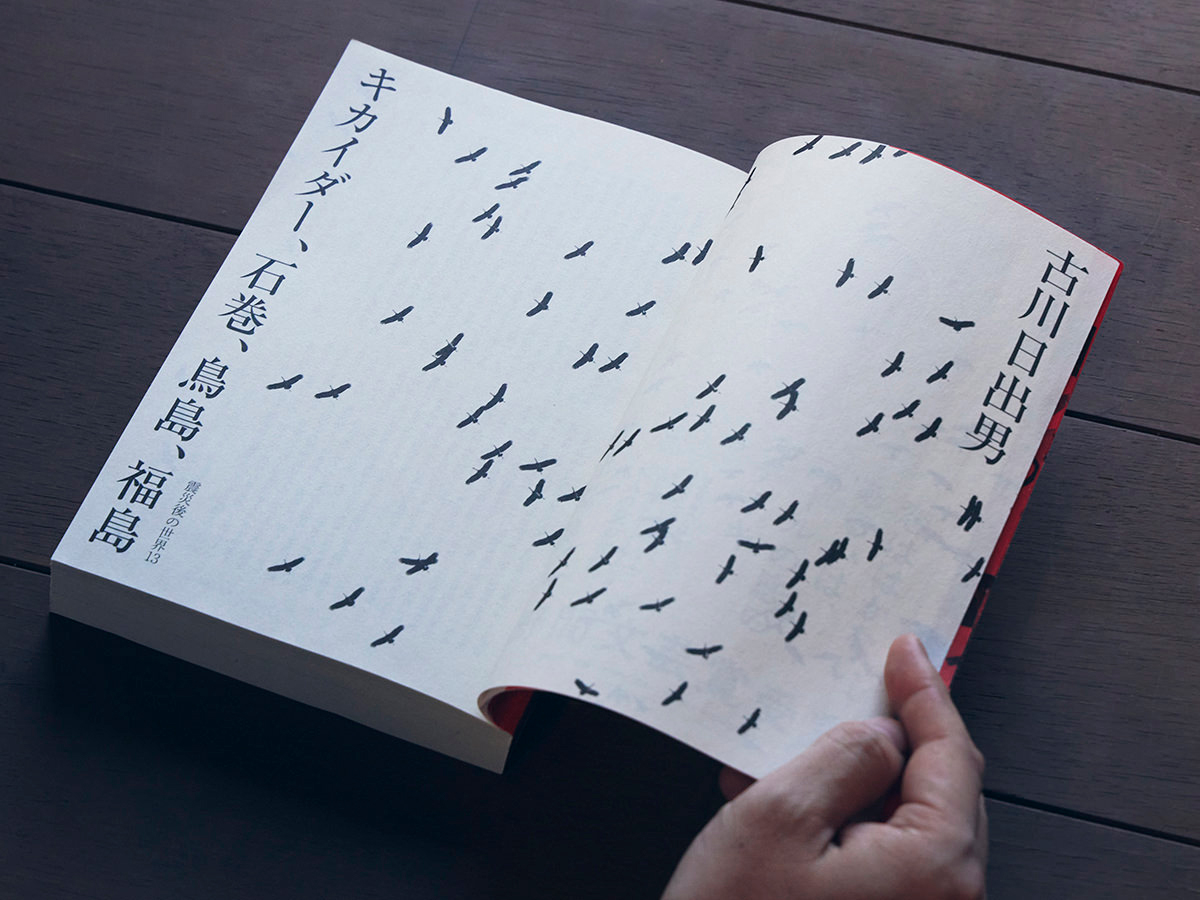 古川日出男
キカイダー、石巻、鳥島、福島
震災後の世界13